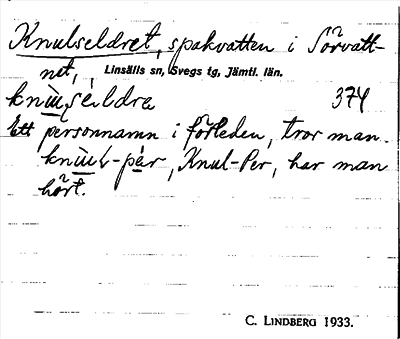 Knulseldret, spakvatten i Sörvatt-
net, Linsälls sn, Svegs tg, Jämtl. län.
374
Ett personnamn i förleden, tror man.
Knul-Per, har man
hört.
C. LINDBERG 1933.